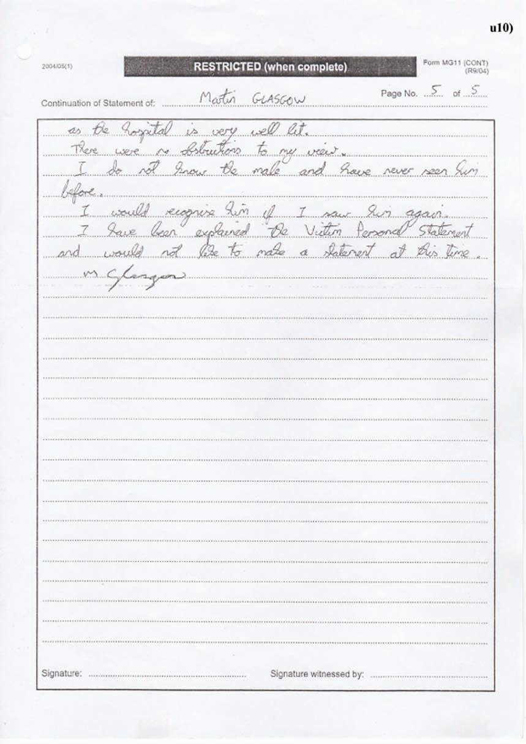 u10)
2004/05(1)
RESTRICTED (when complete)
Form MG11 (CONT)
(R9/04)
Page No. 5 of 5
Continuation of Statement of: Martin GLASGOW
as the hospital is very well lit.
There were no obstructions to my view.
I do not know the male and have never seen him
before.
I would recognise him if I saw him again.
I have been explained the Victim Personal Statement
and would not like to make a statement at this time.
M Glasgow
Signature:
Signature witnessed by: